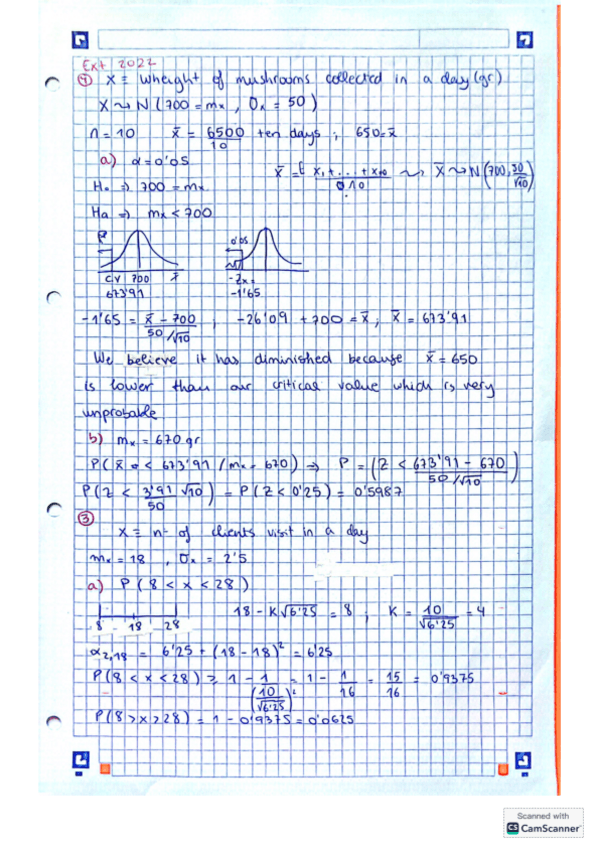 Ext 2022
④ X ≡ wheight of mushrooms collected in a day (gr)
X ~ N (700 = mx , σx = 50)
n = 10 x̄ = 6500/10 ten days ; 650 = x̄
a) α = 0'05
x̄ = x1 + ... + x10 / 10 ~ X̄ ~ N(700, 50/√10)
Ho => 700 = mx
Ha => mx < 700
0'05
C.V 700 x̄
673'91
-Zα =
-1'65
-1'65 = x̄ - 700 / 50/√10 ; -26'09 + 700 = x̄ ; x̄ = 673'91
We believe it has diminished because x̄ = 650
is lower than our critical value which is very
unprobable
b) mx = 670 gr
P(x̄ < 673'91 / mx = 670) => P = (Z < 673'91 - 670 / 50/√10)
P(Z < 3'91 √10 / 50) = P(Z < 0'25) = 0'5987
③
X ≡ nº of clients visit in a day
mx = 18 , σx = 2'5
a) P(8 < x < 28)
8 18 28
18 - K√6'25 = 8 ; K = 10/√6'25 = 4
α2,18 = 6'25 + (18 - 18)² = 6'25
P(8 < x < 28) ≥ 1 - 1/(10/√6'25)² = 1 - 1/16 = 15/16 = 0'9375
P(8 > x > 28) = 1 - 0'9375 = 0'0625
Scanned with
CS CamScanner